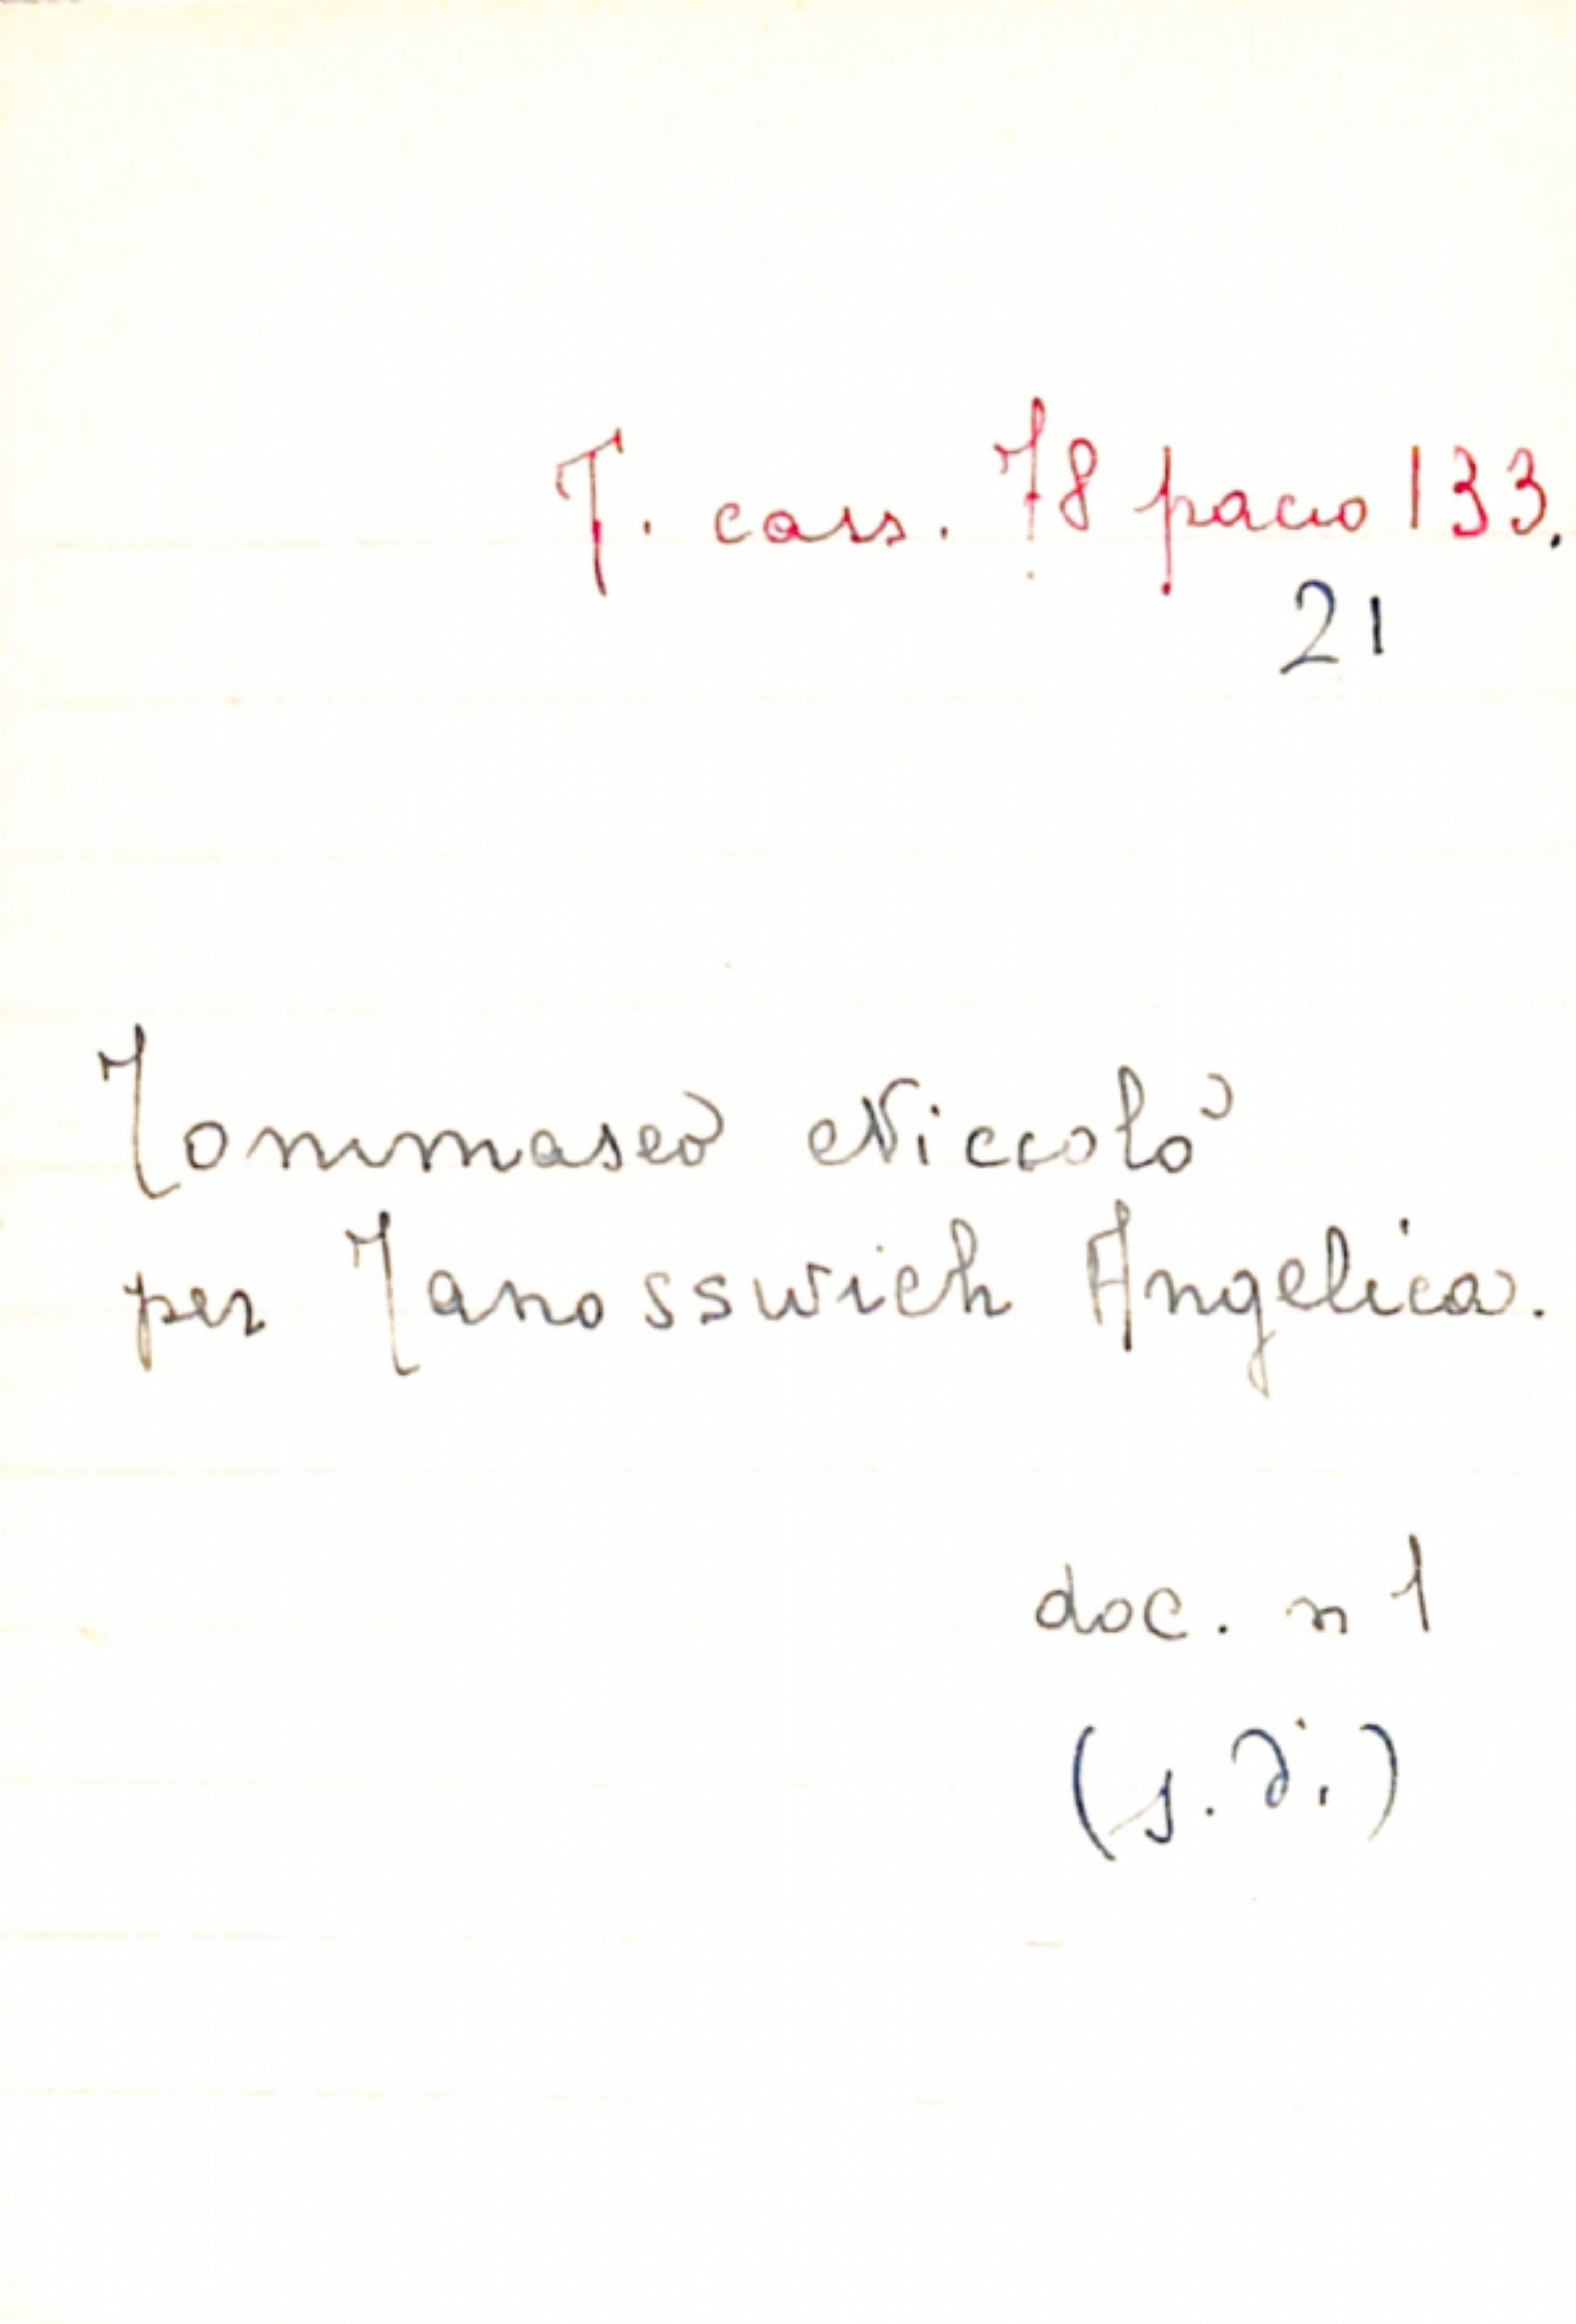 T. cass. 78 pacco 133.
21
Tommaseo Niccolò
per Janosswich Angelica.
doc. n 1
(s. d.)